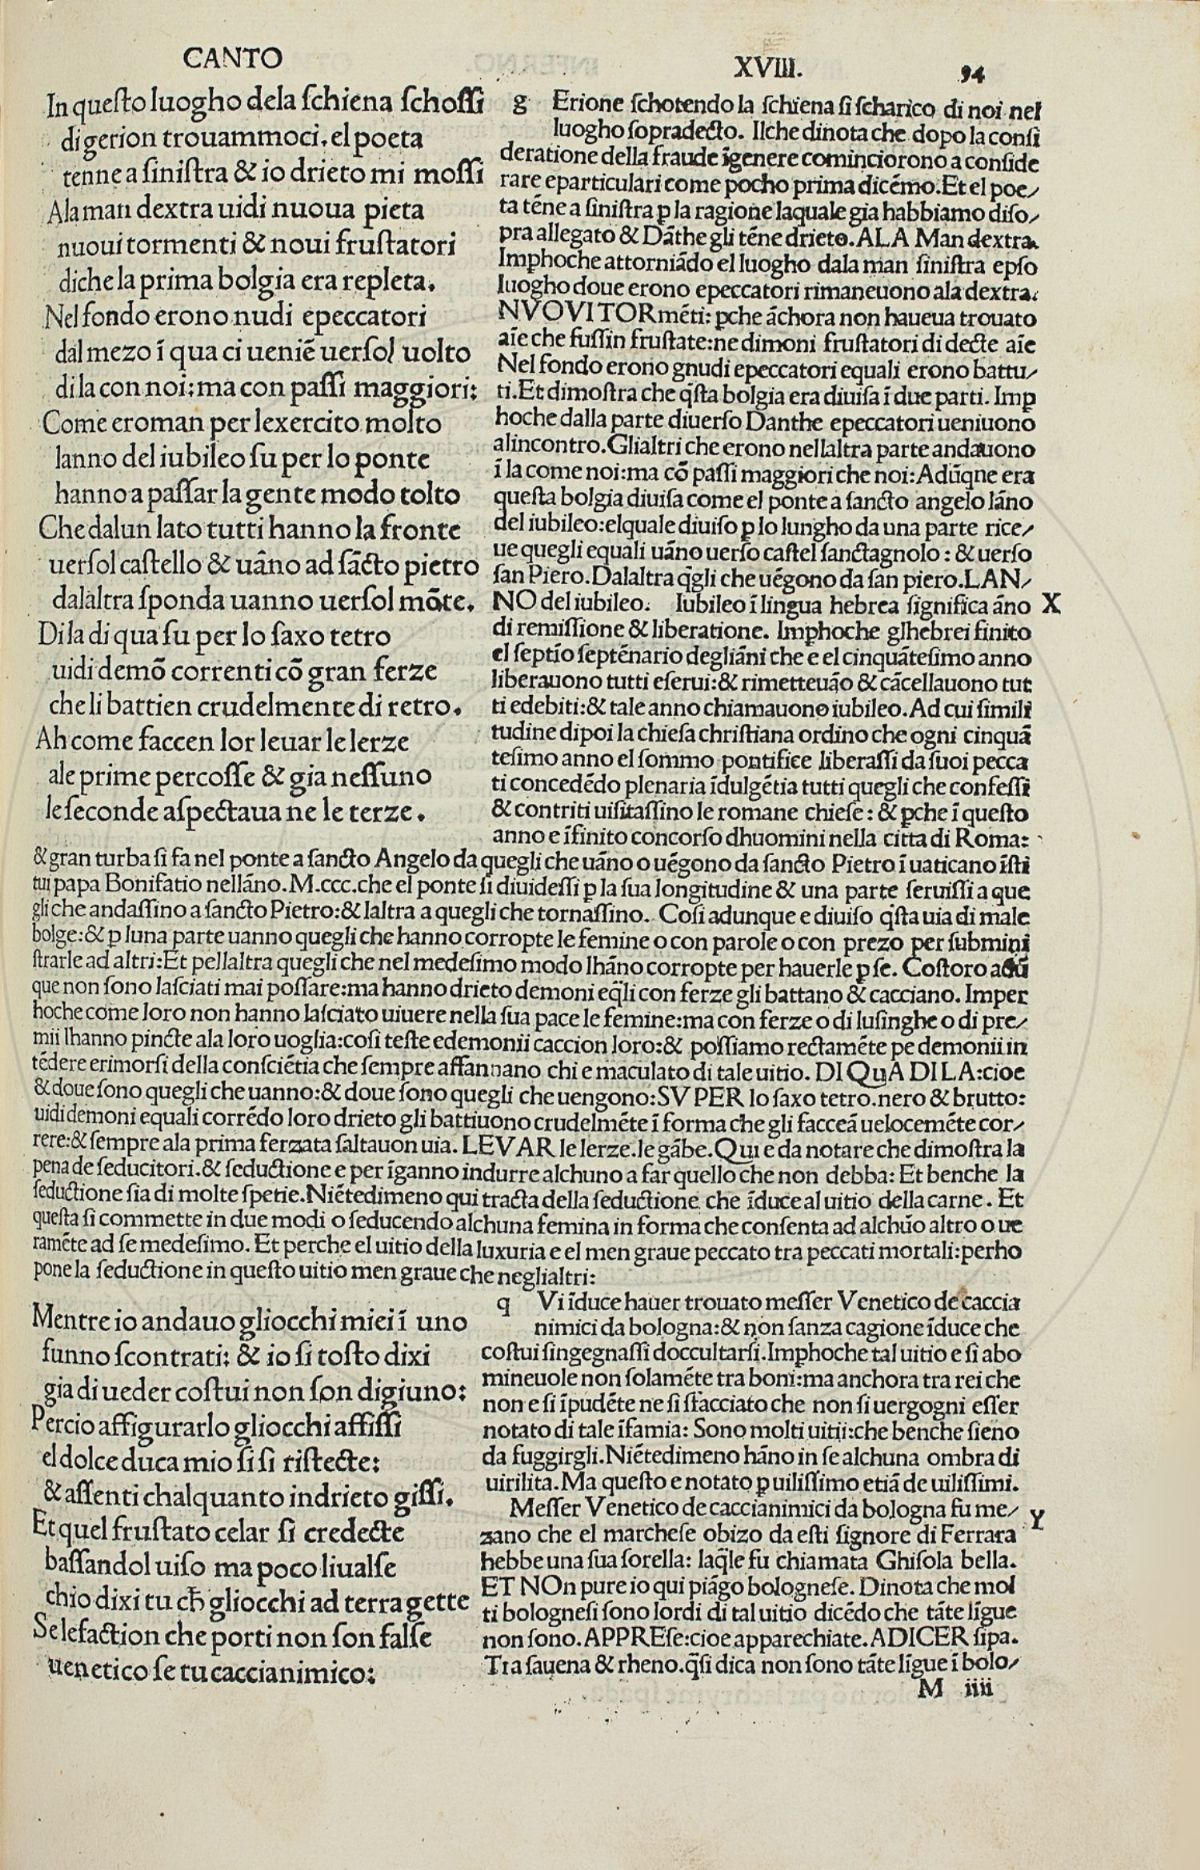 CANTO
XVIII.
94
In queſto luogho dela ſchiena ſchoſſi
di gerion trouammoci, el poeta
tenne a ſiniſtra & io drieto mi moſſi
Ala man dextra uidi nuoua pieta
nuoui tormenti & noui fruſtatori
di che la prima bolgia era repleta.
Nel fondo erono nudi epeccatori
dal mezo ĩ qua ci ueniẽ uerſol uolto
di la con noi: ma con paſſi maggiori:
Come eroman per lexercito molto
lanno del iubileo ſu per lo ponte
hanno a paſſar la gente modo tolto
Che dalun lato tutti hanno la fronte
uerſol caſtello & uãno ad ſãcto pietro
dalaltra ſponda uanno uerſol mõte.
Di la di qua ſu per lo ſaxo tetro
uidi demõ correnti cõ gran ferze
che li battien crudelmente di retro.
Ah come faccen lor leuar le lerze
ale prime percoſſe & gia neſſuno
le ſeconde aſpectaua ne le terze.
g Erione ſchotendo la ſchiena ſi ſcharico di noi nel
luogho ſopradecto. Ilche dinota che dopo la conſi
deratione della fraude ĩgenere cominciorono a conſide
rare eparticulari come pocho prima dicẽmo: Et el poe/
ta tẽne a ſiniſtra ꝑ la ragione laquale gia habbiamo diſo/
pra allegato & Dãthe gli tẽne drieto. ALA Man dextra.
Imphoche attorniãdo el luogho dala man ſiniſtra epſo
luogho doue erono epeccatori rimaneuono ala dextra.
NVOVI TORmẽti: ꝑche ãchora non haueua trouato
aĩe che fuſſin fruſtate: ne dimoni fruſtatori di decte aĩe
Nel fondo erono gnudi epeccatori equali erono battu/
ti. Et dimoſtra che q̃ſta bolgia era diuiſa ĩ due parti. Imꝑ
hoche dalla parte diuerſo Danthe epeccatori ueniuono
alincontro. Glialtri che erono nellaltra parte andauono
ĩ la come noi: ma cõ paſſi maggiori che noi: Adũqne era
queſta bolgia diuiſa come el ponte a ſancto angelo lãno
del iubileo: elquale diuiſo ꝑ lo lungho da una parte rice/
ue quegli equali uãno uerſo caſtel ſanctagnolo: & uerſo
ſan Piero. Dalaltra q̃gli che uẽgono da ſan piero. LAN/
NO del iubileo. Iubileo ĩ lingua hebrea ſignifica ãno X
di remiſſione & liberatione. Imphoche glhebrei finito
el ſeptĩo ſeptẽnario degliãni che e el cinquãteſimo anno
liberauono tutti eſerui: & rimetteuão & cãcellauono tut
ti edebiti: & tale anno chiamauono iubileo. Ad cui ſimili
tudine dipoi la chieſa chriſtiana ordino che ogni cinquã
teſimo anno el ſommo pontifice liberaſſi da ſuoi pecca
ti concedẽdo plenaria ĩdulgẽtia tutti quegli che confeſſi
& contriti uiſitaſſino le romane chieſe: & ꝑche ĩ queſto
anno e ĩfinito concorſo dhuomini nella citta di Roma:
& gran turba ſi fa nel ponte a ſancto Angelo da quegli che uãno o uẽgono da ſancto Pietro ĩ uaticano ĩſti
tui papa Bonifatio nellãno. M.ccc. che el ponte ſi diuideſſi ꝑ la ſua longitudine & una parte ſeruiſſi a que
gli che andaſſino a ſancto Pietro: & laltra a quegli che tornaſſino. Coſi adunque e diuiſo q̃ſta uia di male
bolge: & ꝑ luna parte uanno quegli che hanno corropte le femine o con parole o con prezo per ſubmini
ſtrarle ad altri: Et pellaltra quegli che nel medeſimo modo lhãno corropte per hauerle ꝑ ſe. Coſtoro adũ
que non ſono laſciati mai poſſare: ma hanno drieto demoni eq̃li con ferze gli battano & cacciano. Imper
hoche come loro non hanno laſciato uiuere nella ſua pace le femine: ma con ferze o di luſinghe o di pre/
mii lhanno pincte ala loro uoglia: coſi teſte edemonii caccion loro: & poſſiamo rectamẽte pe demonii in
tẽdere erimorſi della conſciẽtia che ſempre affannano chi e maculato di tale uitio. DI QuA DI LA: cioe
& doue ſono quegli che uanno: & doue ſono quegli che uengono: SV PER lo ſaxo tetro. nero & brutto:
uidi demoni equali corrẽdo loro drieto gli battiuono crudelmẽte ĩ forma che gli facceã uelocemẽte cor/
rere: & ſempre ala prima ferzata ſaltauon uia. LEVAR le lerze. le gãbe. Qui e da notare che dimoſtra la
pena de ſeducitori. & ſeductione e per ĩganno indurre alchuno a far quello che non debba: Et benche la
ſeductione ſia di molte ſpetie. Niẽtedimeno qui tracta della ſeductione che ĩduce al uitio della carne. Et
queſta ſi commette in due modi o ſeducendo alchuna femina in forma che conſenta ad alchũo altro o ue
ramẽte ad ſe medeſimo. Et perche el uitio della luxuria e el men graue peccato tra peccati mortali: perho
pone la ſeductione in queſto uitio men graue che neglialtri:
Mentre io andauo gliocchi miei ĩ uno
funno ſcontrati: & io ſi toſto dixi
gia di ueder coſtui non ſon digiuno:
Percio affigurarlo gliocchi affiſſi
el dolce duca mio ſi ſi riſtecte:
& aſſenti chalquanto indrieto giſſi.
Et quel fruſtato celar ſi credecte
baſſandol uiſo ma poco li ualſe
chio dixi tu cħ gliocchi ad terra gette
Se le faction che porti non ſon falſe
uenetico ſe tu caccianimico:
q Vi ĩduce hauer trouato meſſer Venetico de caccia
nimici da bologna: & non ſanza cagione ĩduce che
coſtui ſingegnaſſi doccultarſi. Imphoche tal uitio e ſi abo
mineuole non ſolamẽte tra boni: ma anchora tra rei che
non e ſi ĩpudẽte ne ſi ſfacciato che non ſi uergogni eſſer
notato di tale ĩfamia: Sono molti uitii: che benche ſieno
da fuggirgli. Niẽtedimeno hãno in ſe alchuna ombra di
uirilita. Ma queſto e notato ꝑ uiliſſimo etiã de uiliſſimi.
Meſſer Venetico de caccianimici da bologna fu me/ Y
zano che el marcheſe obizo da eſti ſignore di Ferrara
hebbe una ſua ſorella: laq̃le fu chiamata Ghiſola bella.
ET NOn pure io qui piãgo bologneſe. Dinota che mol
ti bologneſi ſono lordi di tal uitio dicẽdo che tãte ligue
non ſono. APPREſe: cioe apparechiate. A DICER ſipa.
Tra ſauena & rheno. q̃ſi dica non ſono tãte lĩgue ĩ bolo/
M iiii